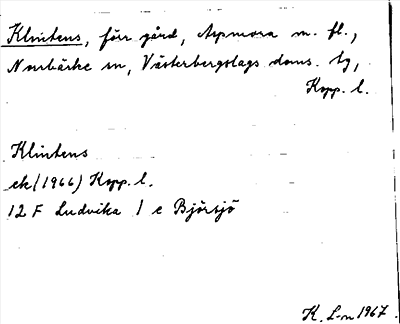 Klintens, förr gård, Aspmora m. fl.,
Norrbärke sn, Västerbergslags doms. tg,
Kopp. l.
Klintens
ek (1966) Kopp. l.
12 F Ludvika 1 c Björsjö
K. L-n 1967.